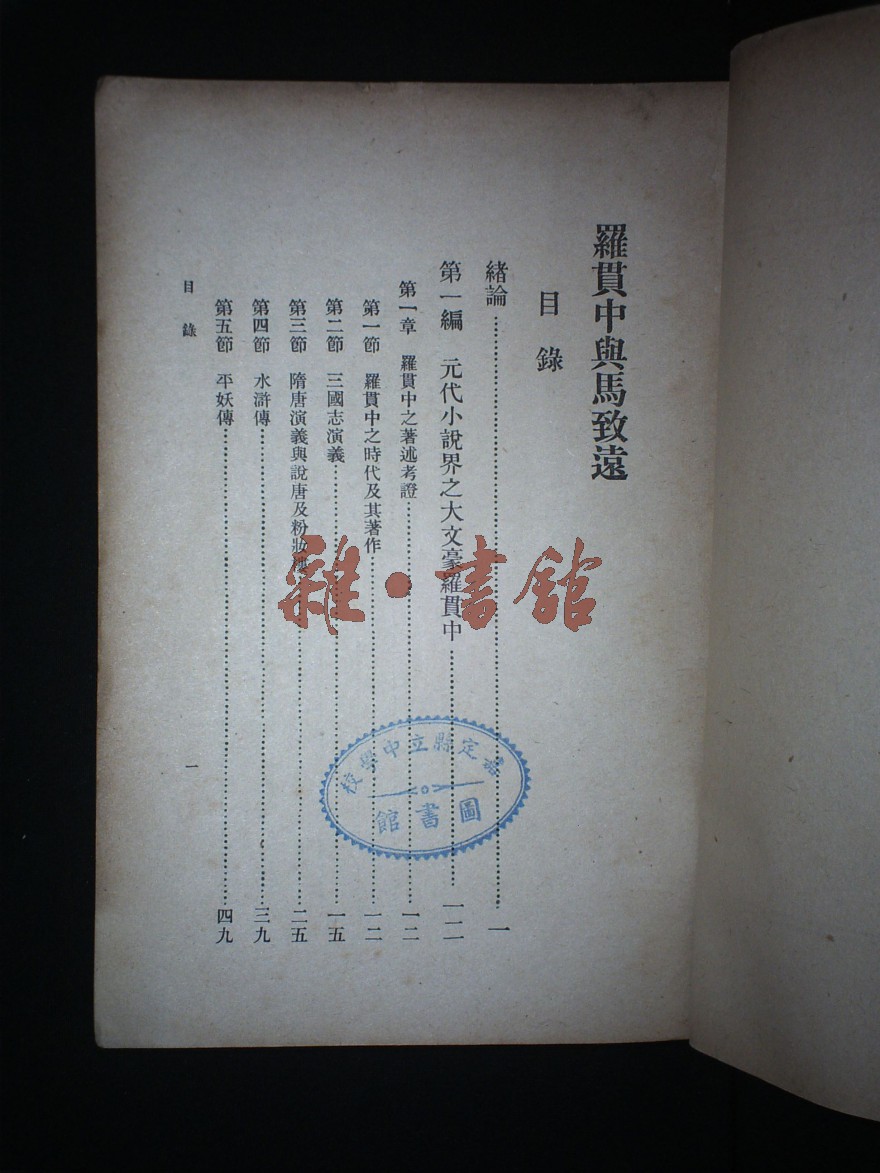 羅貫中與馬致遠
目錄
緒論……………………一
第一編 元代小說界之大文豪羅貫中……………………一二
第一章 羅貫中之著述考證……………………一二
第一節 羅貫中之時代及其著作……………………一二
第二節 三國志演義……………………一五
第三節 隋唐演義與說唐及粉妝樓……………………二五
第四節 水滸傳……………………三九
第五節 平妖傳……………………四九
目錄
一
雜·書館
嘉定縣立中學校
圖書館